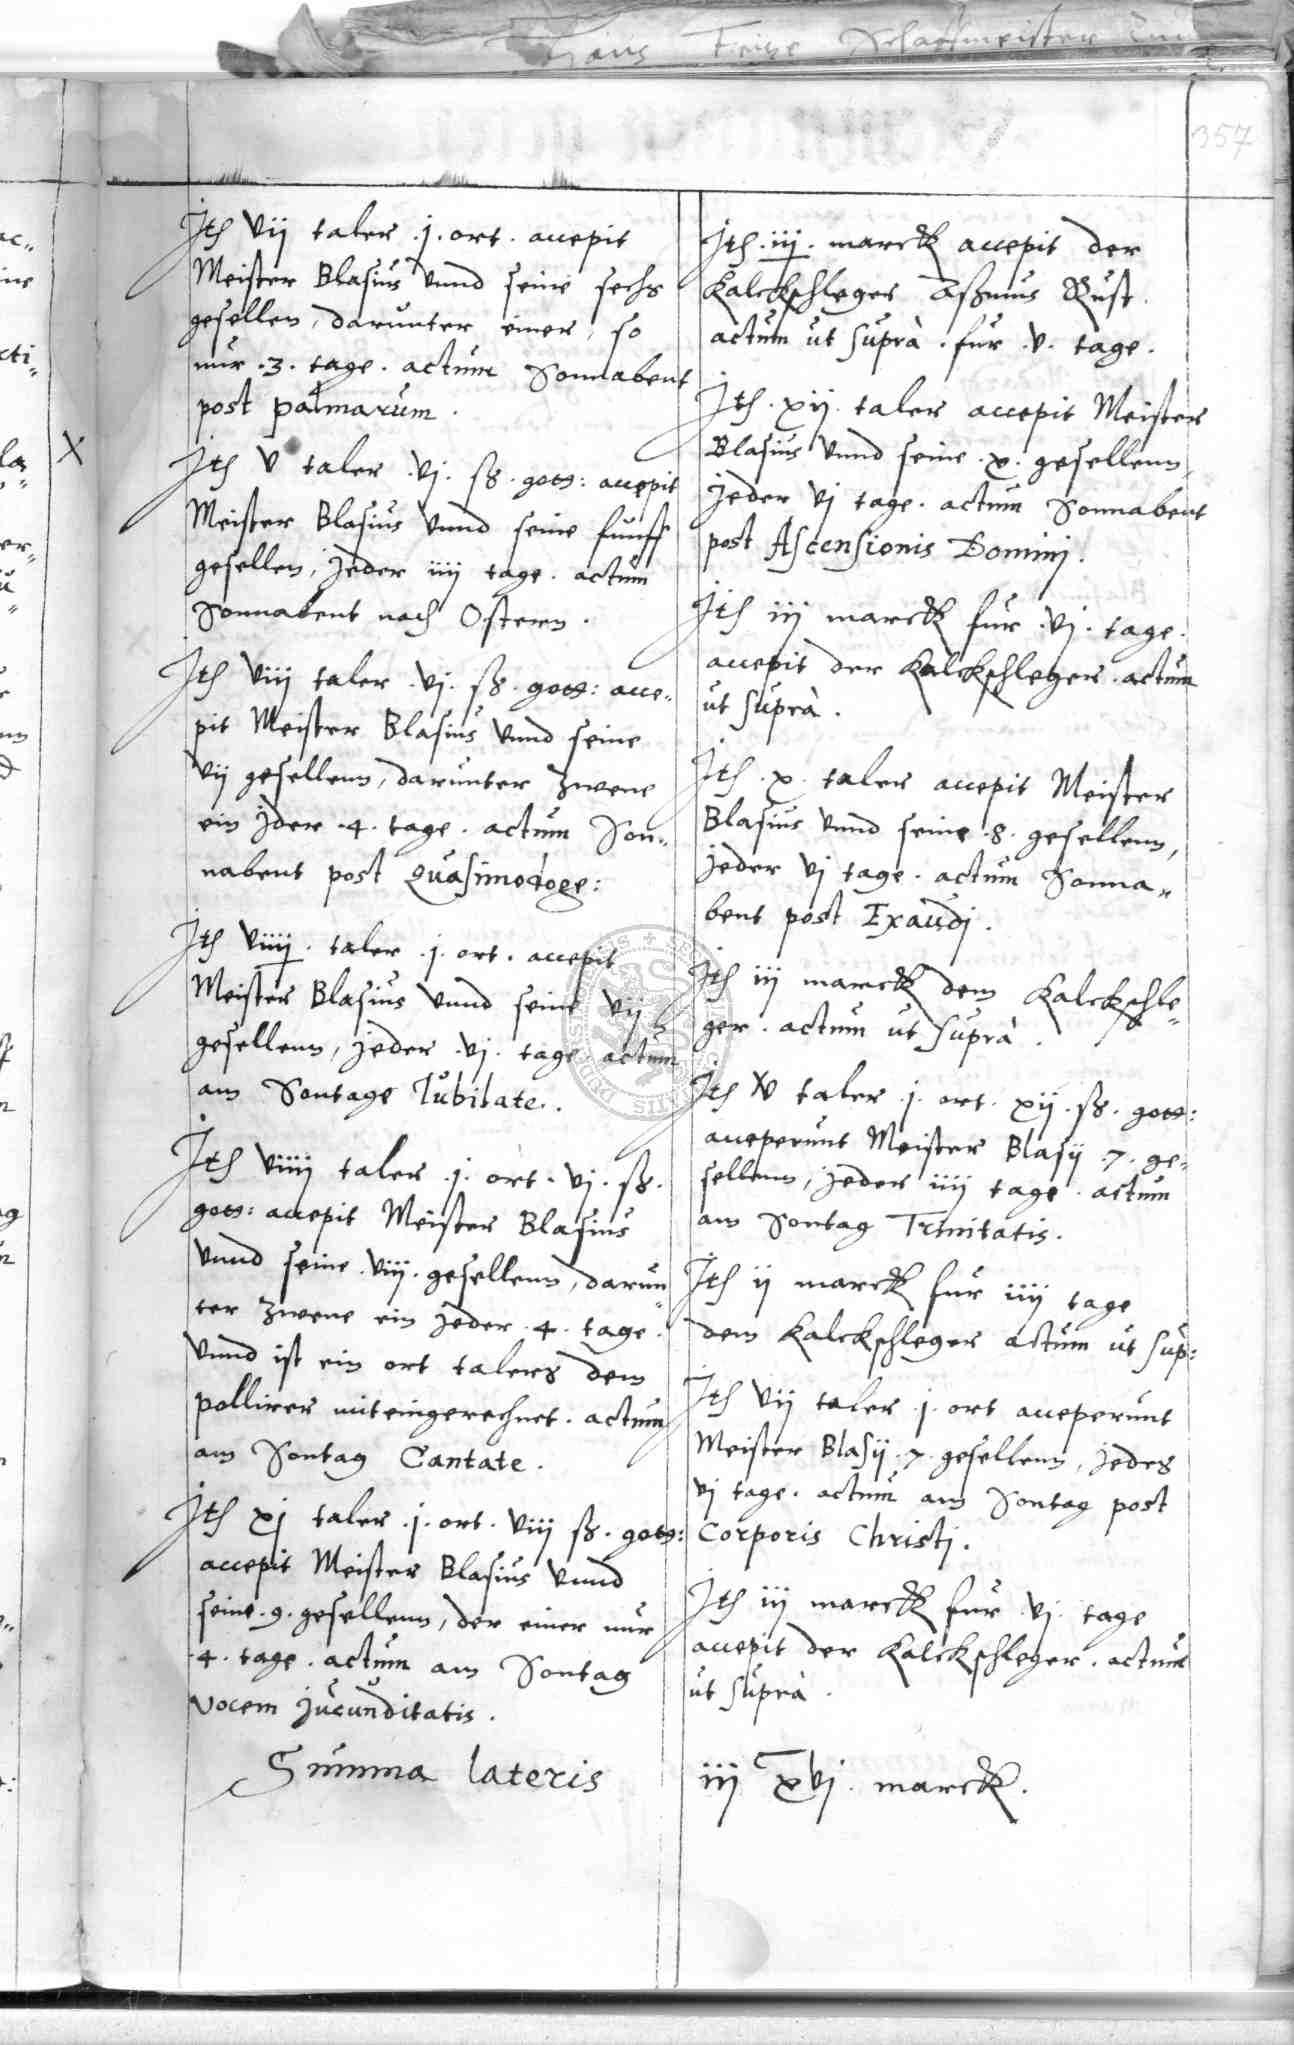 357
Jtē vij taler .j. ort. accepit
Meister Blasius vnnd seine sechs
gesellen, darunter einer, so
nur .3. tage. actum Sonnabent
post palmarum.
Jtē v taler .vj. ß. gosl: accepit
Meister Blasius vnnd seine funff
gesellen, jeder iiij tage. actum
Sonnabent nach Ostern.
Jtē viij taler .vj. ß. gosl: acce„
pit Meister Blasius vnnd seine
vij gesellenn, darunter zwene
ein jder .4. tage. actum Son„
nabent post Quasimodoge:
Jtē viiij. taler .j. ort. accepit
Meister Blasius vnnd seine vij
gesellenn, jeder .vj. tage actum
am Sontage Iubilate.
Jtē viiij taler .j. ort. vj. ß.
gosl: accepit Meister Blasius
vnnd seine .viij. gesellenn, darun„
ter zwene ein jeder .4. tage.
vnnd ist ein ort talers dem
pollirer miteingerechnet. actum
am Sontag Cantate.
Jtē xj taler .j. ort. viij ß. gosl:
accepit Meister Blasius vnnd
seine .9. gesellenn, der einer nur
.4. tage. actum am Sontag
vocem jucunditatis.
Summa lateris
Jtē .iij. marck accepit der
Kalckschleger Aßmus Rust.
actum ut suprà. fur .v. tage.
Jtē .xij. taler accepit Meister
Blasius vnnd seine .x. gesellenn,
jeder vj tage. actum Sonnabent
post Ascensionis Dominj.
Jtē iij marck fur .vj. tage.
accepit der Kalckschleger. actum
ut suprà.
Jtē .x. taler accepit Meister
Blasius vnnd seine .8. gesellenn,
jeder vj tage. actum Sonna„
bent post Exaudj.
Jtē iij marck dem Kalckschle„
ger. actum ut suprà.
Jtē v taler .j. ort. xij. ß. gosl:
acceperunt Meister Blasij .7. ge„
sellenn, jeder iiij tage. actum
am Sontag Trinitatis.
Jtē ij marck fur iiij tage
dem Kalckschleger actum ut sup:
Jtē vij taler .j. ort acceperunt
Meister Blasij .7. gesellenn, jeder
vj tage. actum am Sontag post
Corporis Christj.
Jtē iij marck fur vj. tage
accepit der Kalckschleger. actum
ut suprà.
iij C xvj. marck.